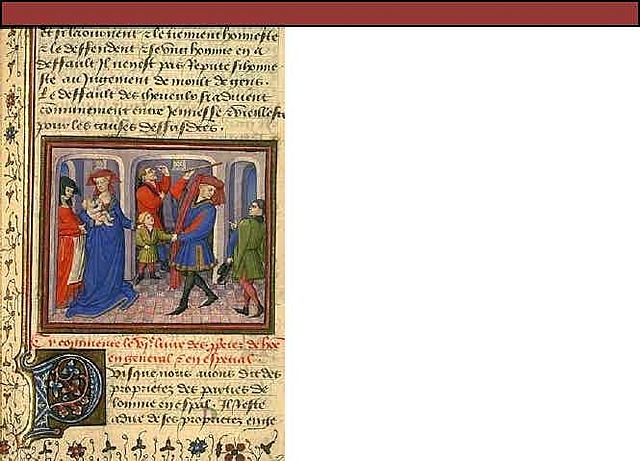 et si la
z le deffendent z se ung homme en a
deffault Il nen est pas Repute si honne
ste au Jugement de moult de gens.
Le deffault des cheveulx si advient
communement entre Jennesse z vieillesse
pour les causes dessusdites.
Cy commence le vjᵉ livre des de
en general z en especial.
Puisque nous avons dit des
proprietez des parties de
lomme en espal. Il reste
a dire de ses proprietez en ge